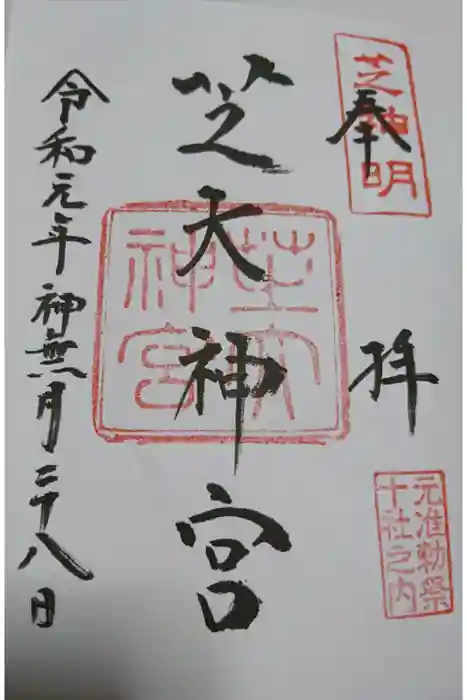 奉拝
芝神明
元准勅祭
十社之内
芝大神宮
芝大
神宮
令和元年神無月二十八日